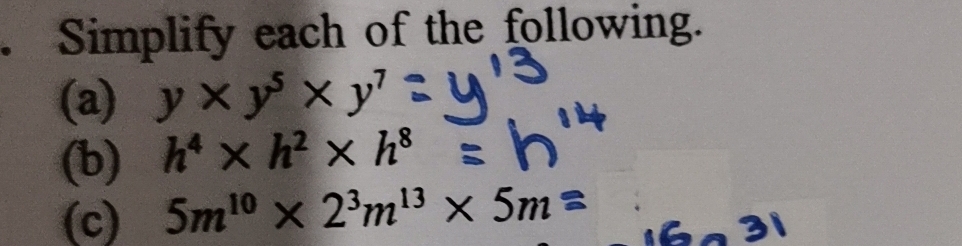 . Simplify each of the following.
(a) y × y⁵ × y⁷ = y¹³
(b) h⁴ × h² × h⁸ = h¹⁴
(c) 5m¹⁰ × 2³m¹³ × 5m =
16 31